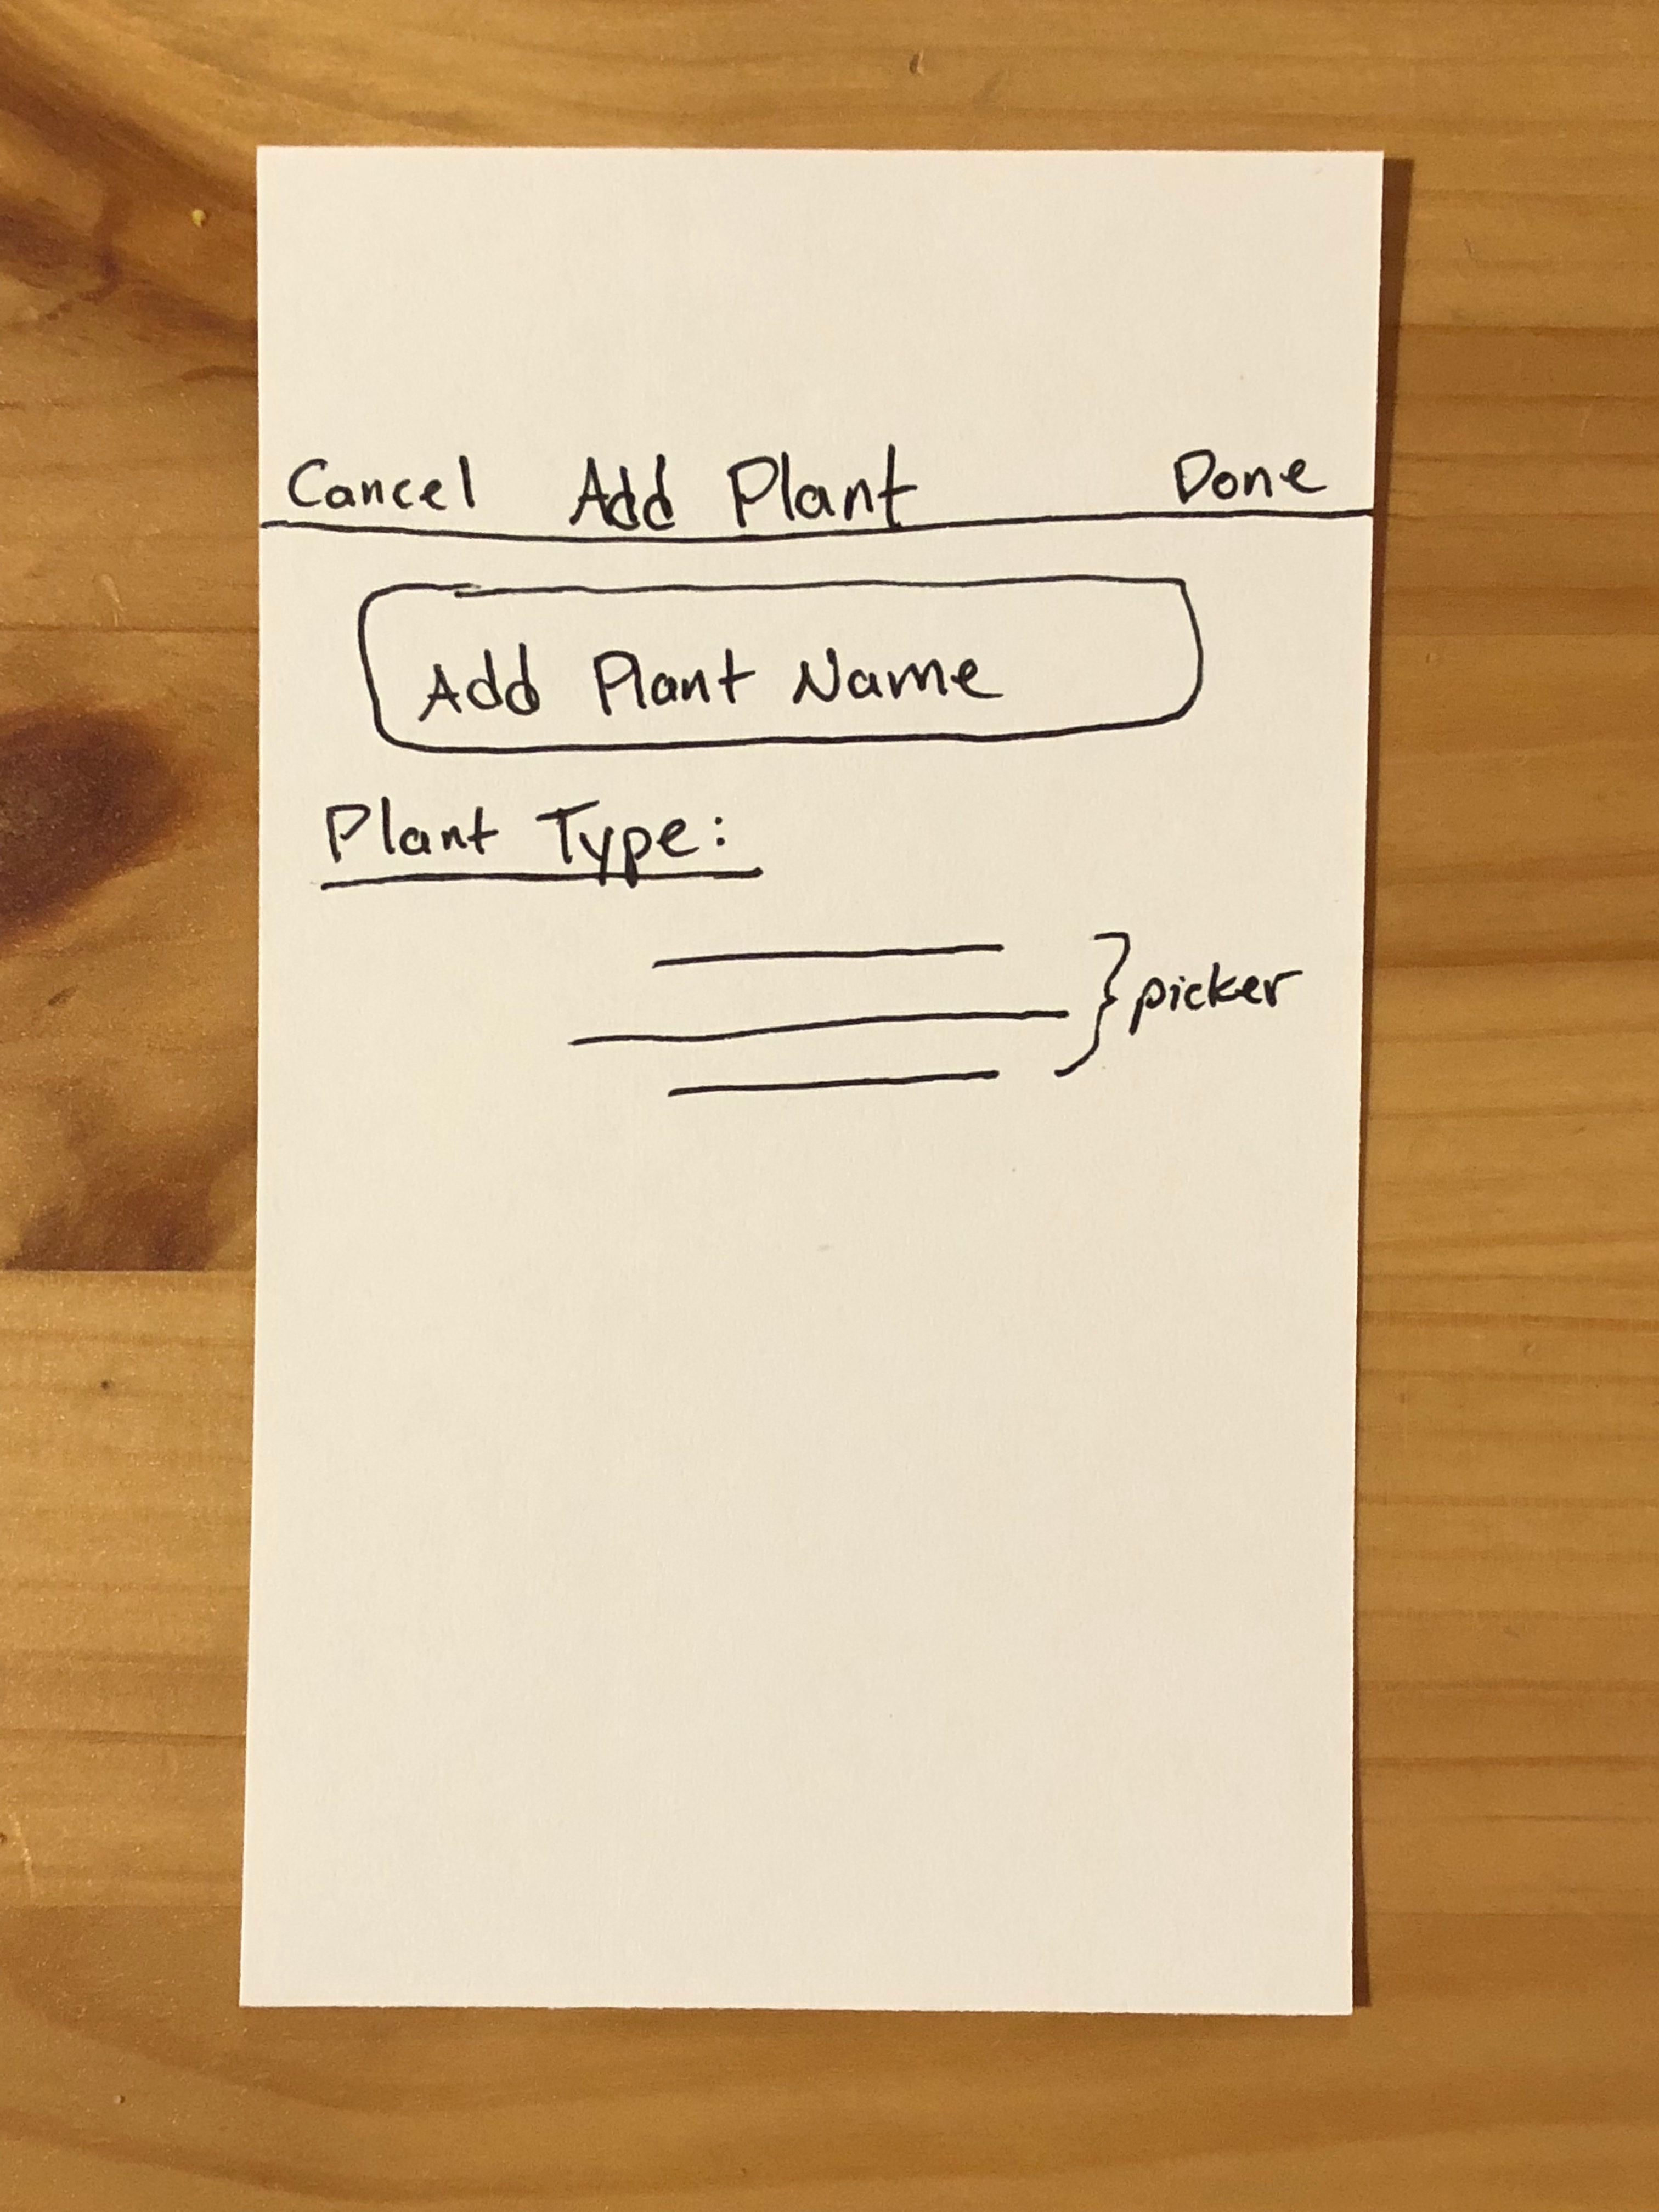 Cancel Add Plant Done
Add Plant Name
Plant Type:
picker